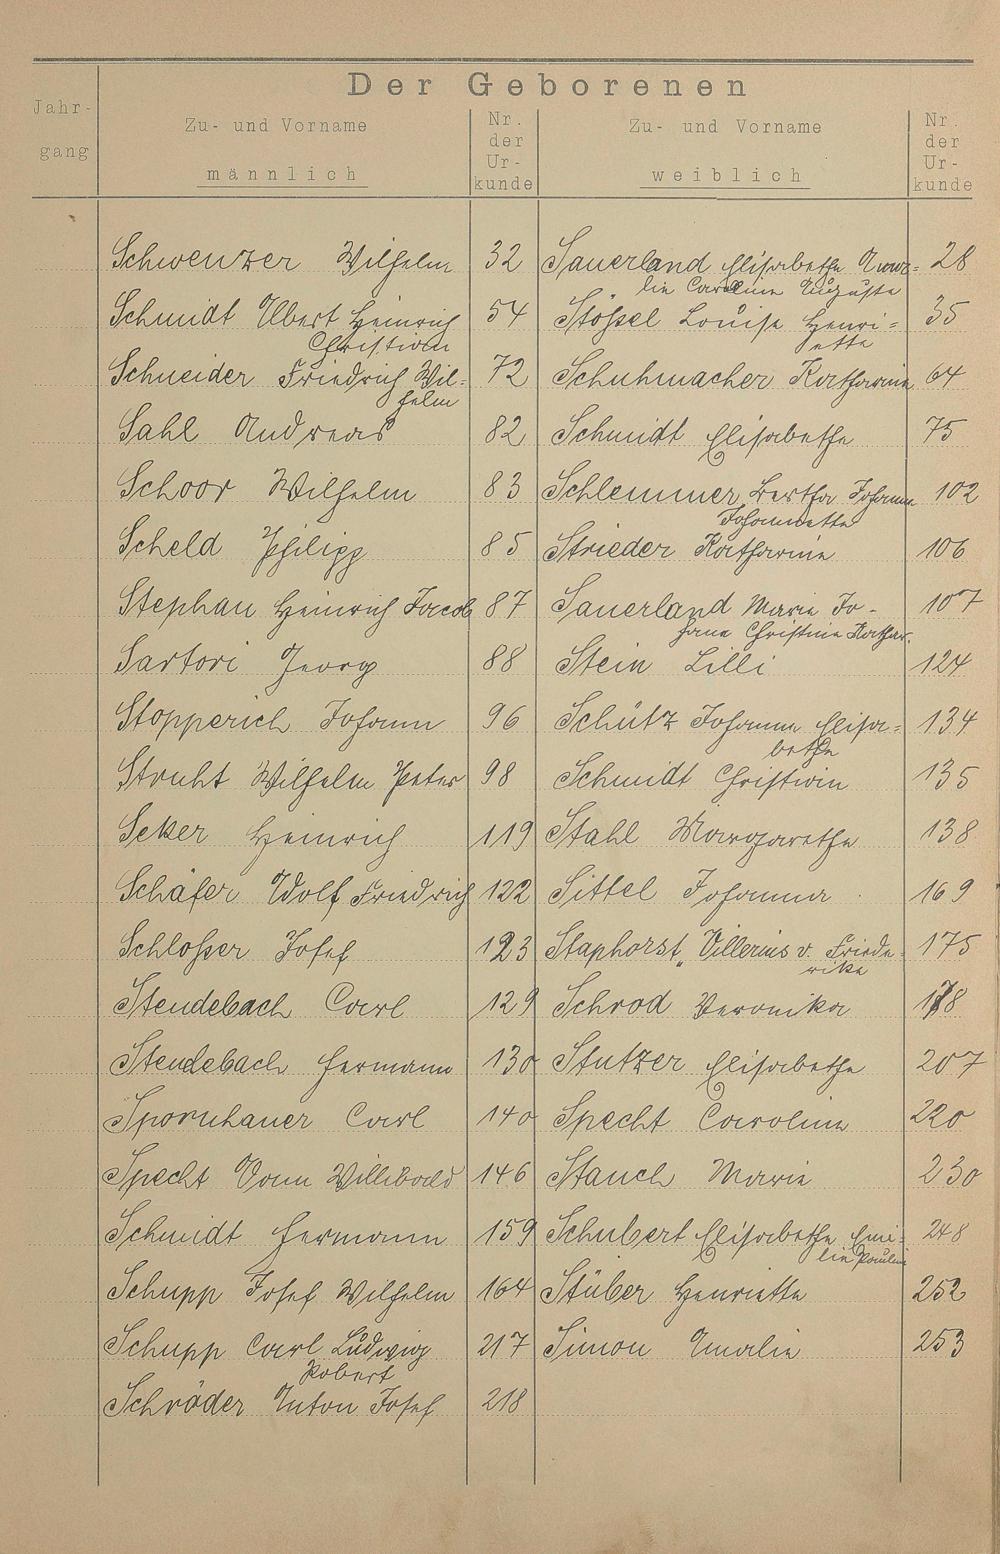 Der Geborenen
Jahr-
gang
Zu- und Vorname
männlich
Nr.
der
Ur-
kunde
Zu- und Vorname
weiblich
Nr.
der
Ur-
kunde
Schwenzer Wilhelm 32 Sauerland Elisabethe Ama= 28
lie Caroline Auguste
Schmidt Albert Heinrich 54 Stößel Louise Henri= 35
Christian ette
Schneider Friedrich Wil= 72 Schuhmacher Katharine 64
helm
Sahl Andreas 82 Schmidt Elisabethe 75
Schoor Wilhelm 83 Schlemmer Bertha Johanna 102
Johannette
Scheld Philipp 85 Strieder Katharine 106
Stephan Heinrich Jacob 87 Sauerland Marie Jo- 107
hana Christine Kathar.
Sartori Georg 88 Stein Lilli 124
Stopperich Johann 96 Schütz Johanna Elisa= 134
bethe
Struht Wilhelm Peter 98 Schmidt Christian 135
Seker Heinrich 119 Stahl Margarethe 138
Schäfer Adolf Friedrich 122 Sittel Johanna 169
Schloßer Josef 123 Staphorst, Villerius v. Friede- 175
rike
Stendebach Carl 129 Schrod Veronika 178
Stendebach Hermann 130 Stutzer Elisabethe 207
Spornhauer Carl 140 Specht Caroline 220
Specht Willibald 146 Stauch Marie 230
Schmidt Hermann 159 Schubert Elisabethe Emi= 248
lie Pauline
Schupp Josef Wilhelm 164 Stüber Henriette 252
Schupp Carl Ludwig 217 Simon Amalie 253
Robert
Schröder Anton Josef 218